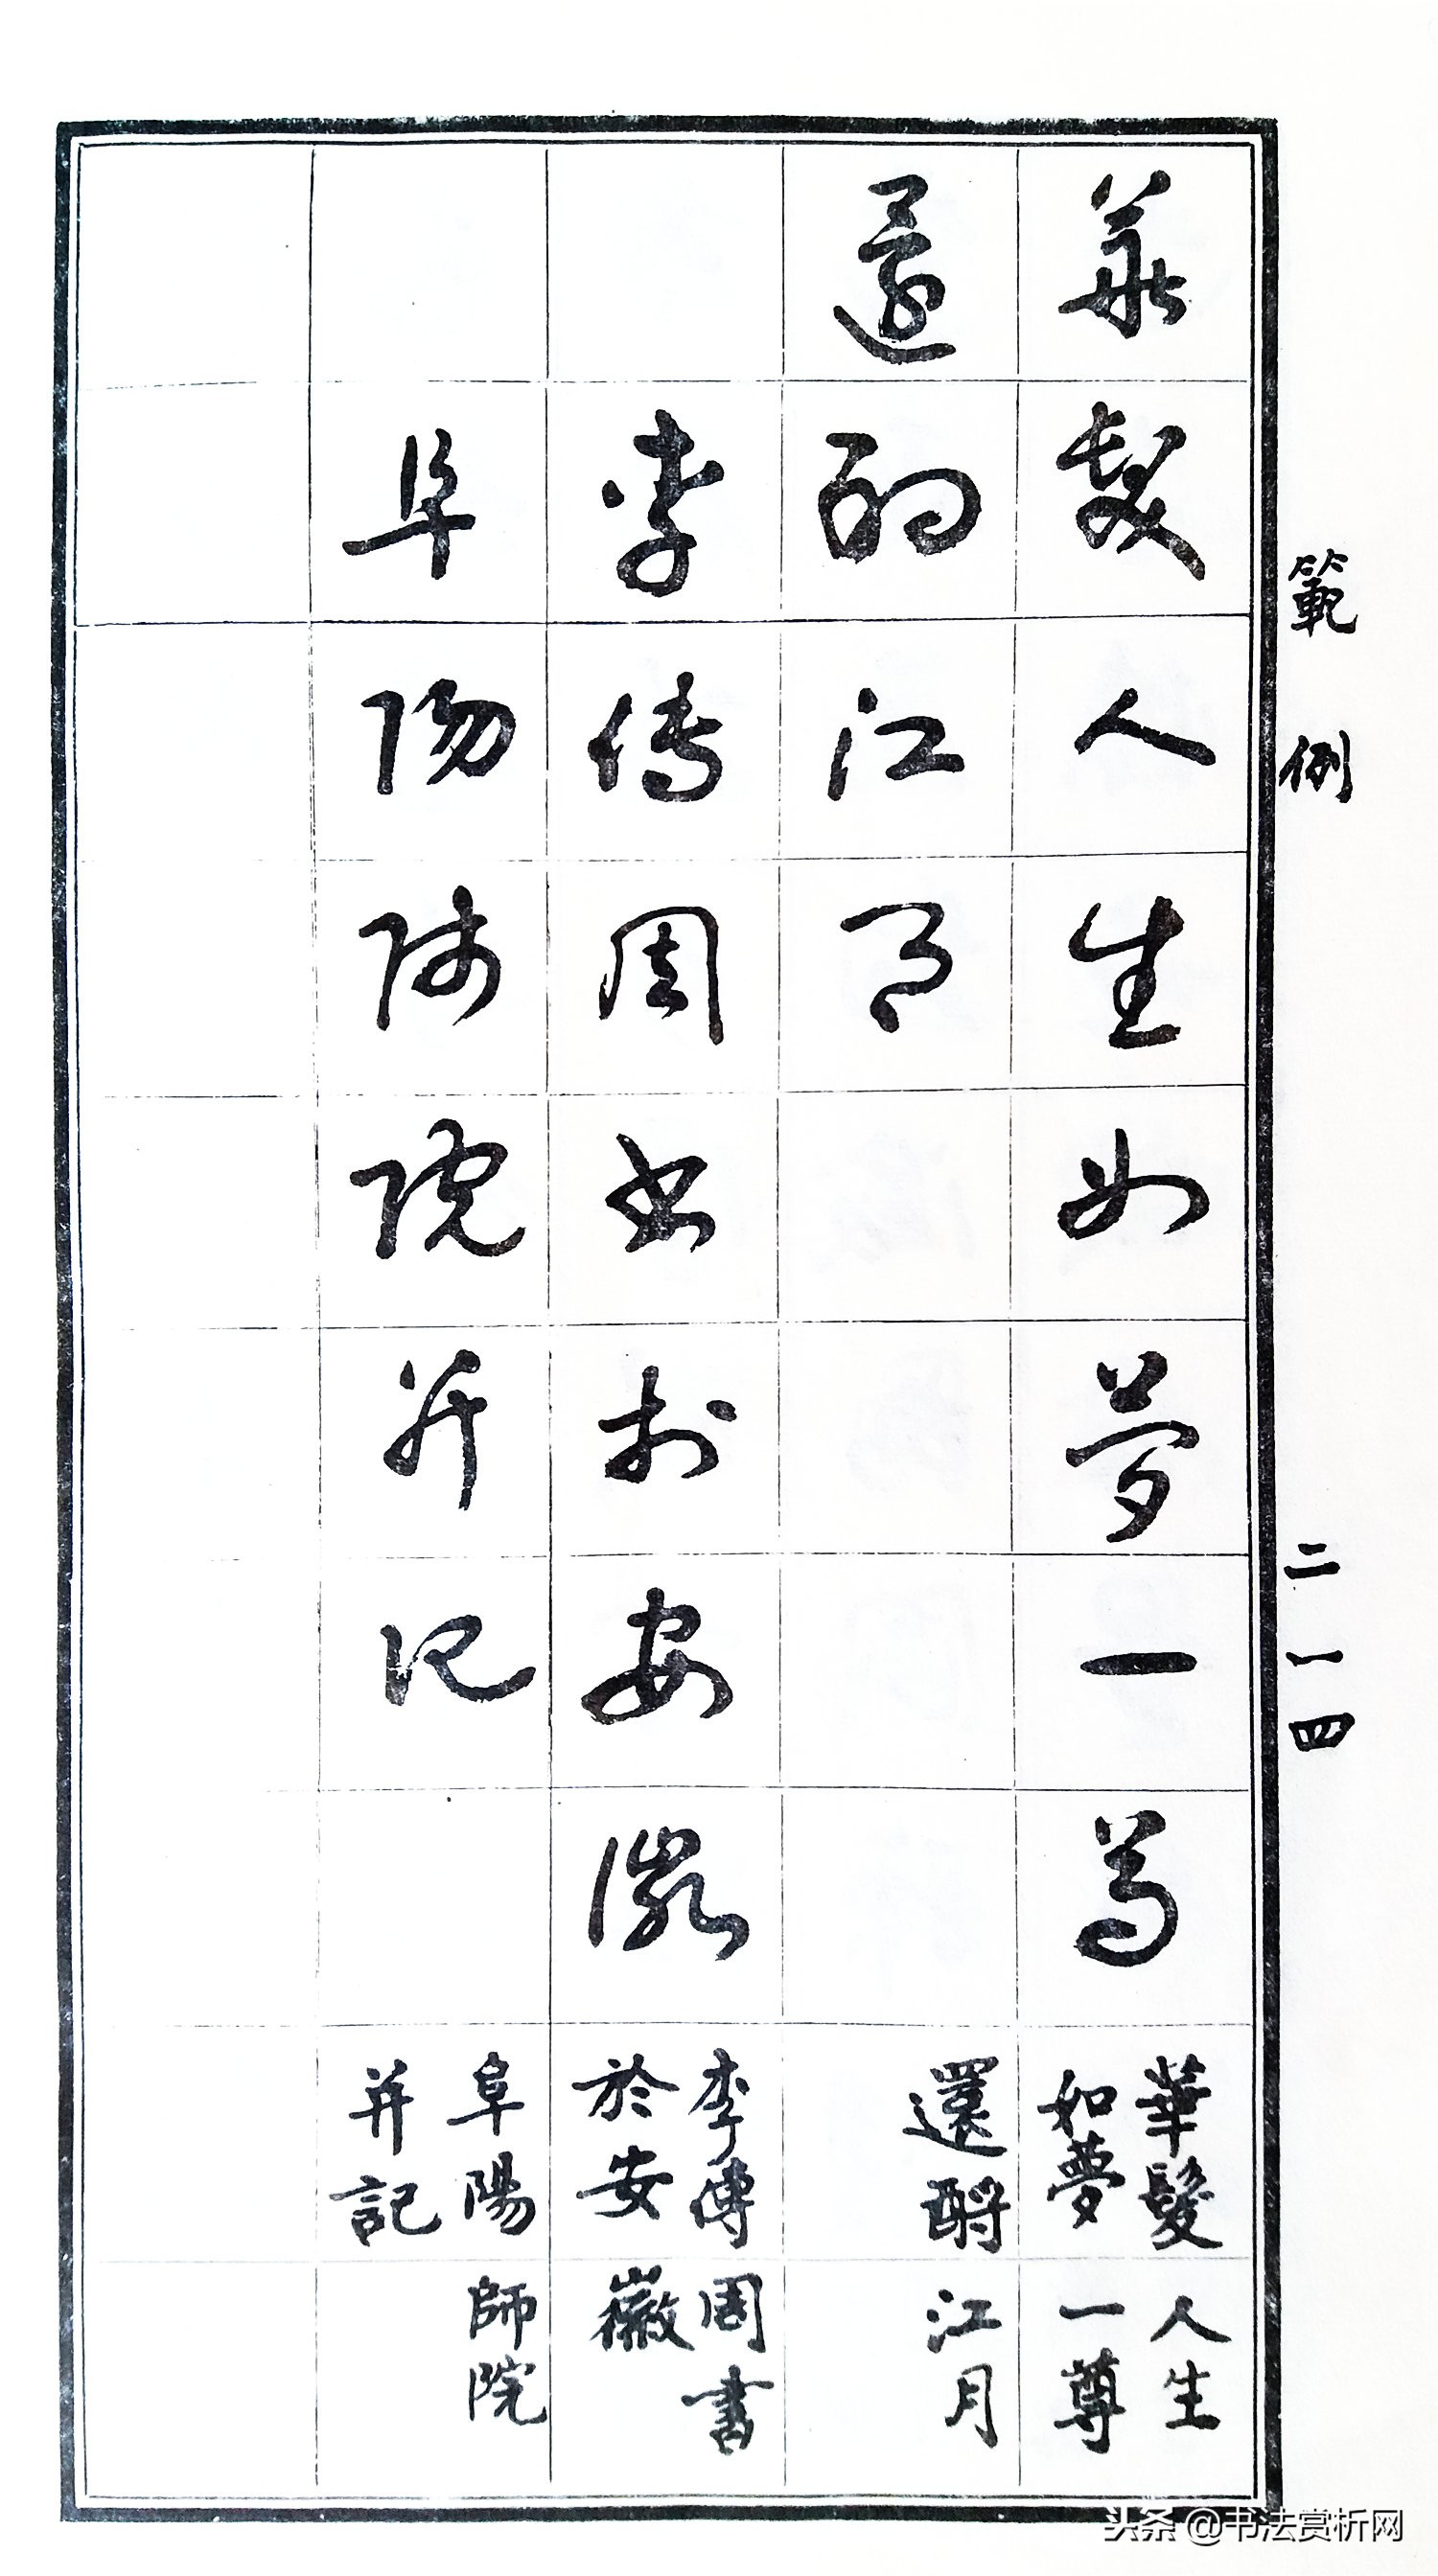 範例
二一四
華髮人生如夢一尊
還酹江月
李傅周書於安徽
阜陽師院并記
華髮人生
如夢一尊
還酹江月
李傅周書
於安徽
阜陽師院
并記
头条 @书法赏析网